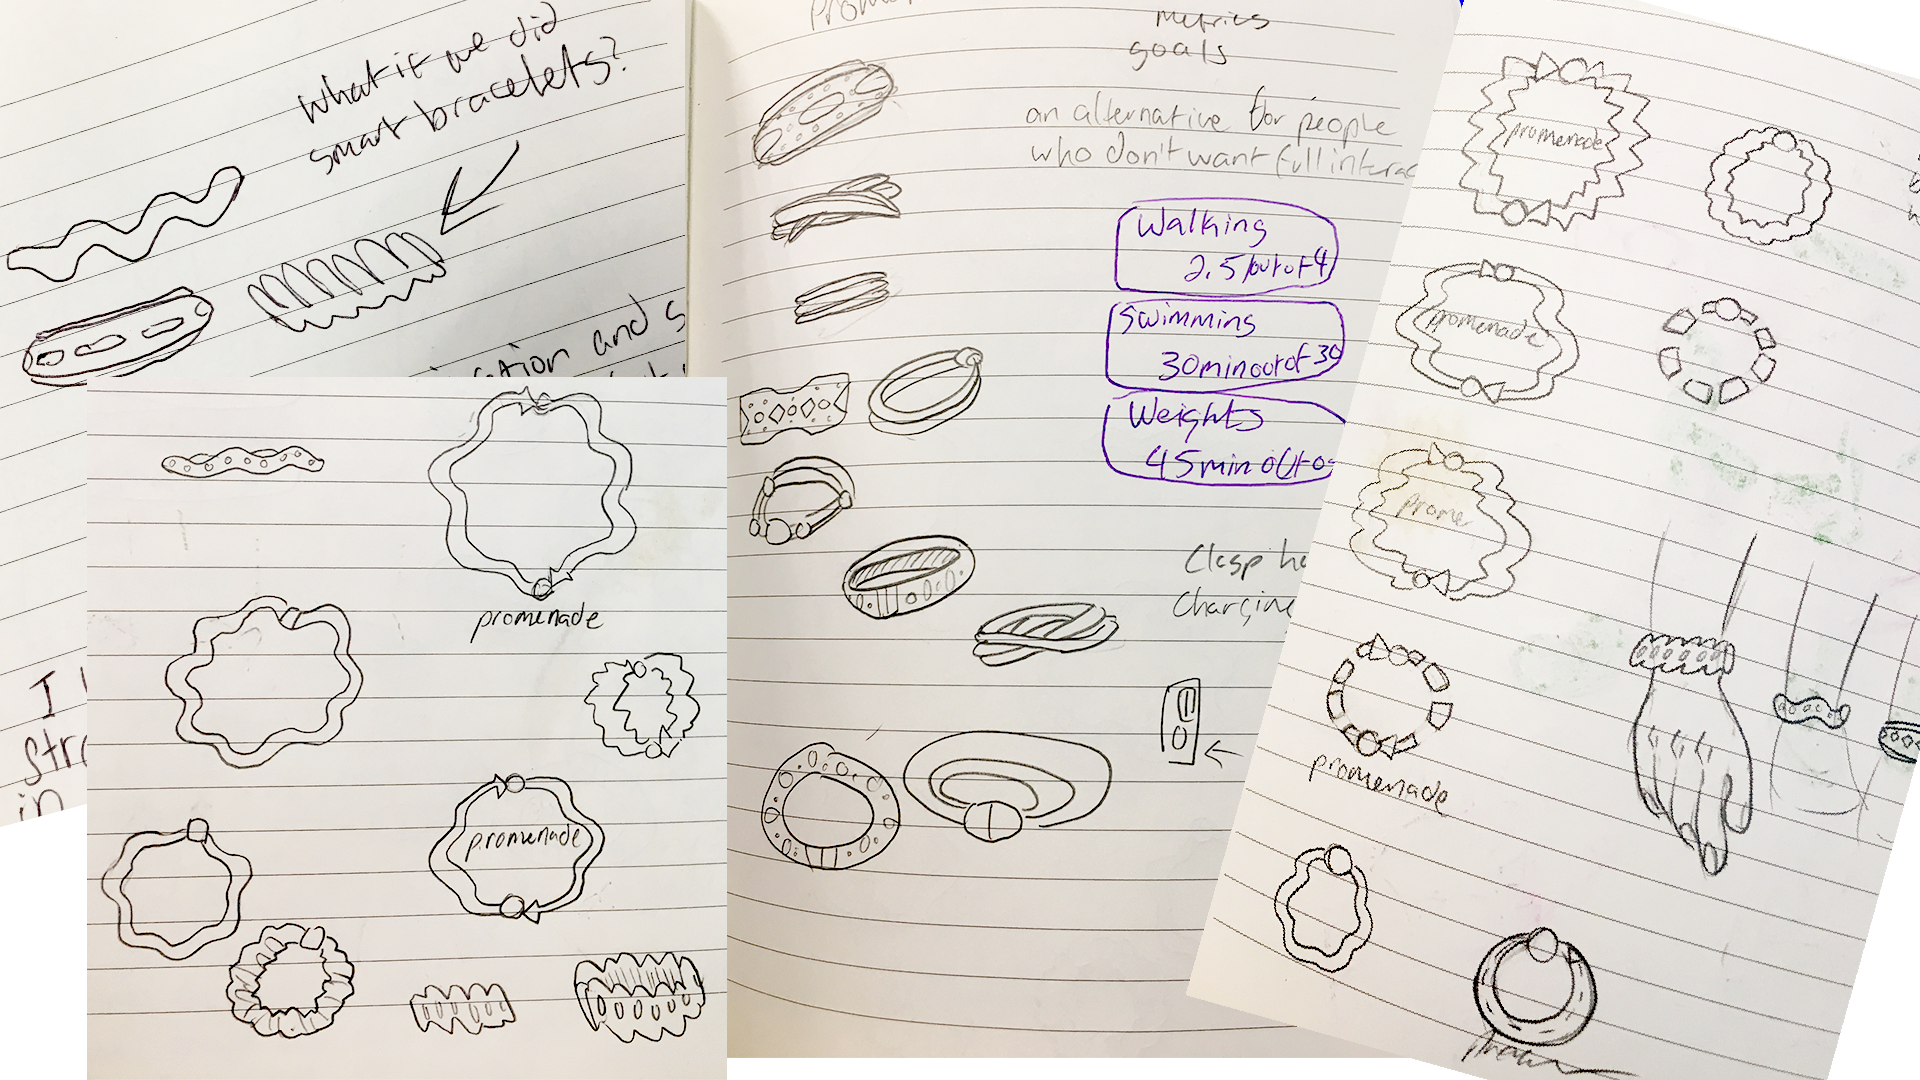 What if we did
smart bracelets?
and s
I
in
promenade
promenade
metrics
goals
an alternative for people
who don't want full interac
Walking
2.5/out of 4
Swimming
30min out of 30
Weights
45min out o
Clasp
Charging
promenade
promenade
prome
promenade